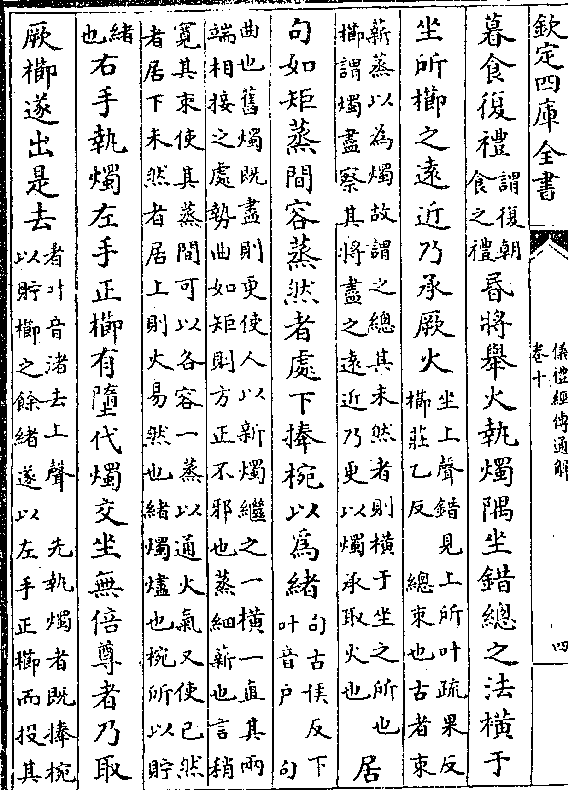 欽定四庫全書
儀禮經傳通解
卷十
四
暮食復禮
謂復朝
食之禮
昬將舉火執燭隅坐錯總之法橫于
坐所櫛之遠近乃承厥火
坐上聲錯見上所叶疏果反
櫛莊乙反 總束也古者束
薪蒸以為燭故謂之總其未然者則橫于坐之所也
櫛謂燭盡察其將盡之遠近乃更以燭承取火也
居
句如矩蒸間容蒸然者處下捧椀以爲緒
句古侯反下
叶音戶 句
曲也舊燭既盡則更使人以新燭繼之一橫一直其兩
端相接之處勢曲如矩則方正不邪也蒸細薪也言稍
寬其束使其蒸間可以各容一蒸以通火氣又使已然
者居下未然者居上則火易然也緒燭燼也椀所以貯
緒
也
右手執燭左手正櫛有墮代燭交坐無倍尊者乃取
厥櫛遂出是去
者叶音渚去上聲 先執燭者既捧椀
以貯櫛之餘緒遂以左手正櫛而投其